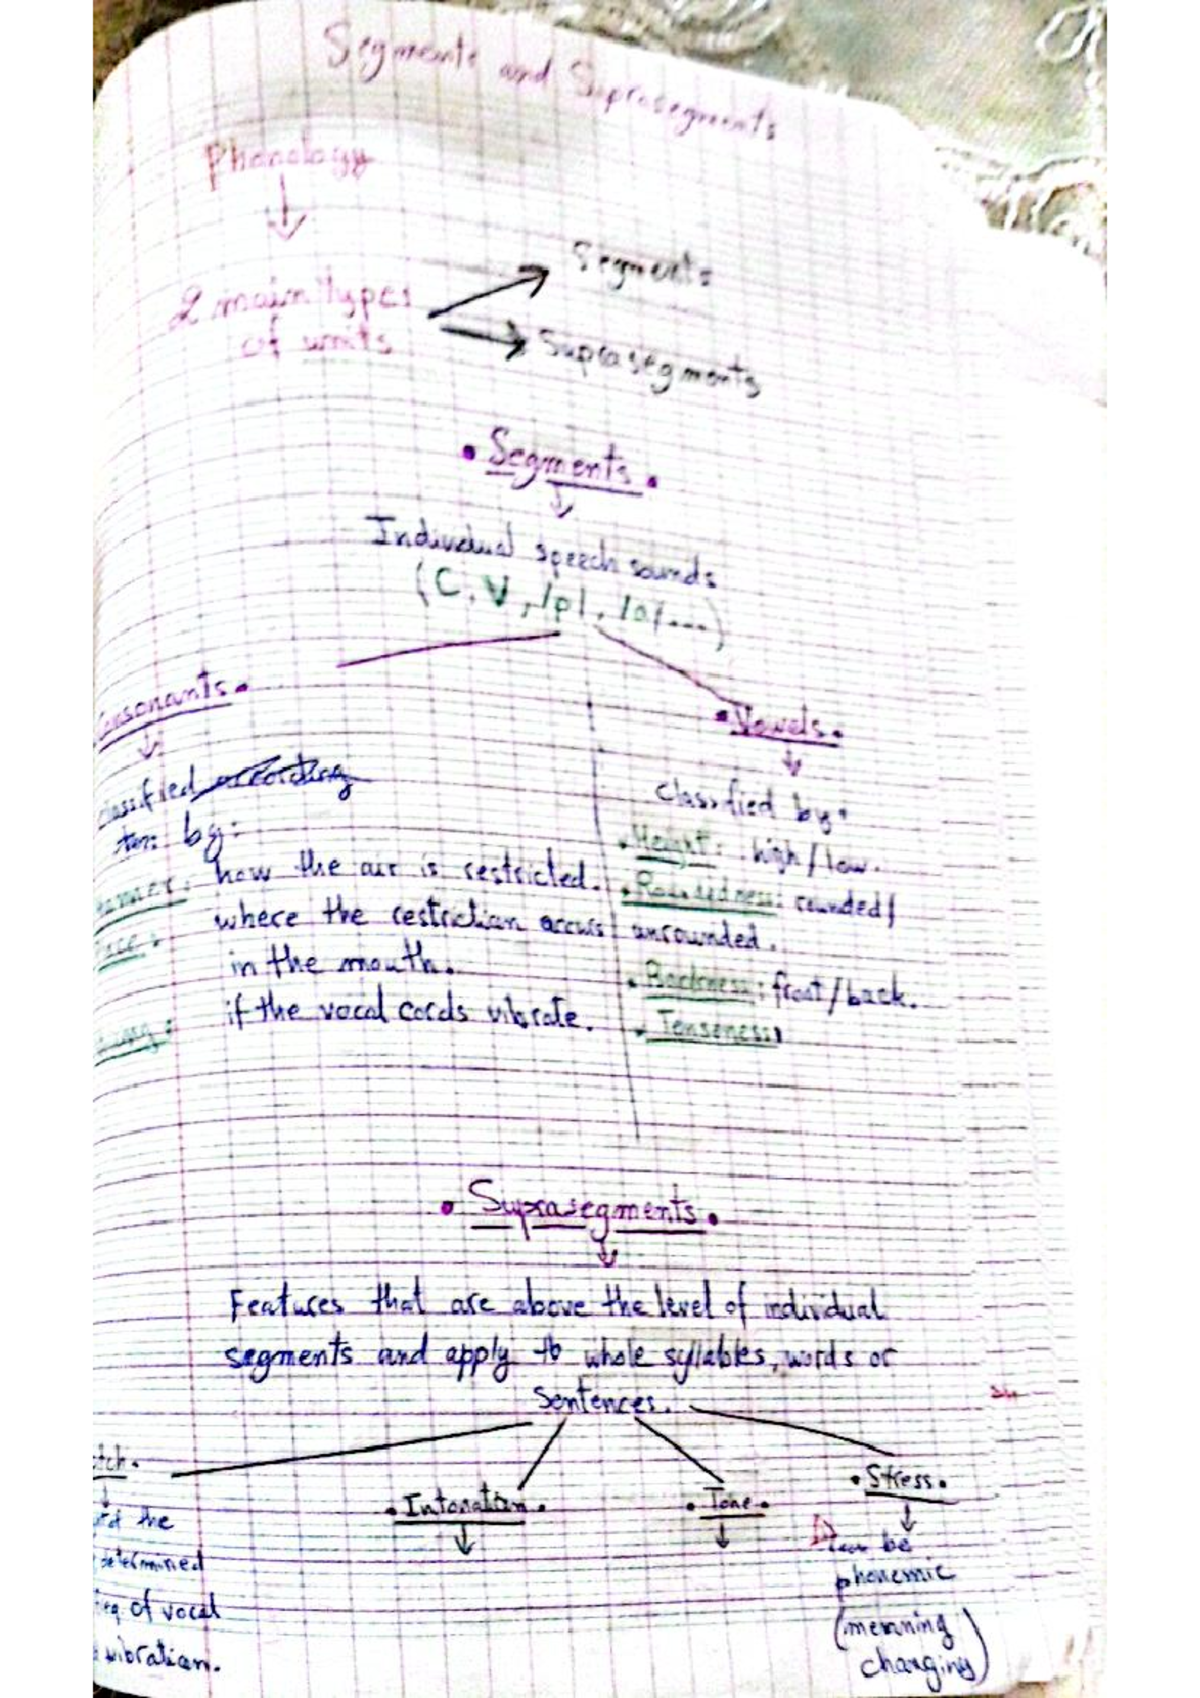 Segments and Suprasegments
Phonology
2 main types
of units
Segments
Suprasegments
• Segments •
Individual speech sounds
(C, V, /p/, /a/...)
onsonants •
lassified according
by:
anner: how the air is restricted.
ace: where the restriction occurs
in the mouth.
if the vocal cords vibrate.
• Vowels •
Classified by:
• Height: high/low.
• Roundedness: rounded/
unrounded.
• Backness: front/back.
• Tenseness:
• Suprasegments •
Features that are above the level of individual
segments and apply to whole syllables, words or
Sentences.
tch •
the
determined
eq. of vocal
vibration.
• Intonation •
• Tone •
• Stress •
can be
phonemic
(meaning
changing)